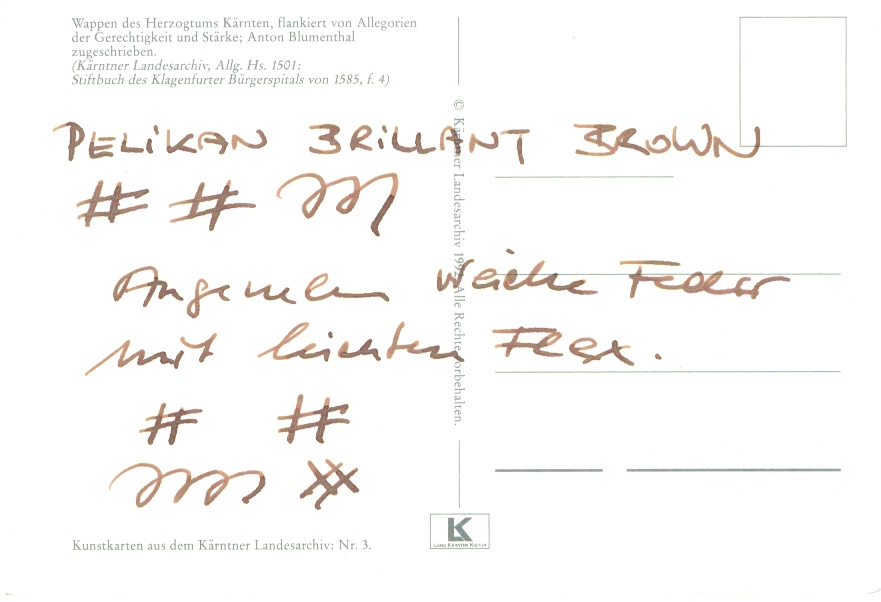 Wappen des Herzogtums Kärnten, flankiert von Allegorien
der Gerechtigkeit und Stärke; Anton Blumenthal
zugeschrieben.
(Kärntner Landesarchiv, Allg. Hs. 1501:
Stiftbuch des Klagenfurter Bürgerspitals von 1585, f. 4)
PELIKAN BRILLANT BROWN
# #
Angenehm weiche Feder
mit leichten Flex.
# #
Kunstkarten aus dem Kärntner Landesarchiv: Nr. 3.
© Kärntner Landesarchiv 1992. Alle Rechte vorbehalten.
LK
LAND KÄRNTEN KULTUR